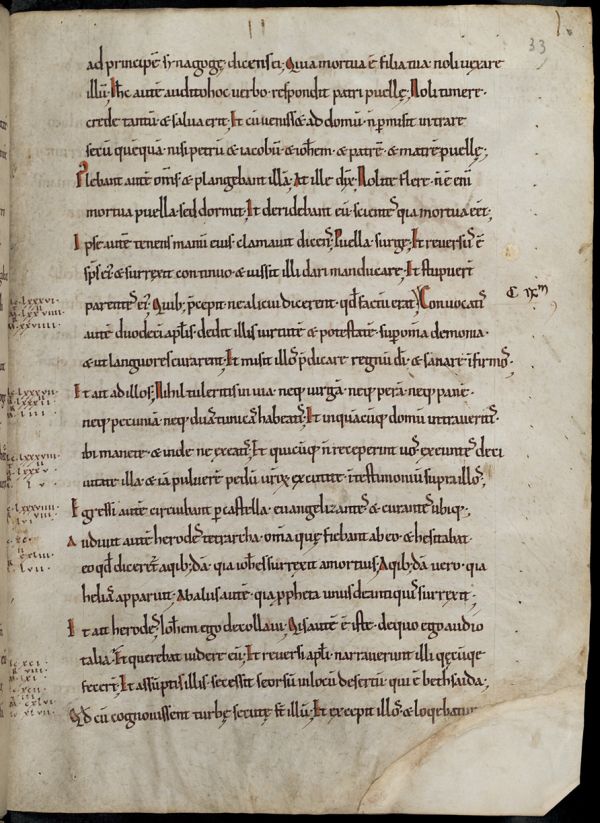 33
ad principē synagogę dicens ei; Quia mortua ē filia tua· noli vexare
illū; Hic autē audito hoc verbo· respondit patri puellę; Noli timere·
crede tantū· & salva erit; Et cū venisset ad domū· n̄ permisit intrare
secū quēquā· nisi petrū & iacobū & iohem· & patrē· & matrē puellę;
Flebant autē om̄s & plangebant illā; At ille dix̄; Nolite flere· n̄ ē eni
mortua puella· sed dormit; Et deridebant eū· scientes quia mortua eēt;
Ipse autē tenens manū eius· clamavit dicens; Puella· surge; Et reversus ē
sp̄s eius· & surrexit continuo· & iussit illi dari manducare; Et stupuerū
parentes eius· Quib; p̄cepit· ne alicui dicerent· qd factū erat; Convocatis
C ixm
autē duodecī ap̄lis· dedit illis virtutē & potestatē· sup om̄ia demonia·
& ut languores curarent; Et misit illos p̄dicare regnū dī· & sanare infirmos·
Et ait ad illos; Nihil tuleritis in via· neq; virgā· neq; perā· neq; panē·
neq; pecuniā· neq; duas tunicas habeatis; Et in quācūq; domū intraveritis·
ibi manete· & inde ne exeatis; Et quicūq; n̄ receperint vos· exeuntes de ci
vitate illa· & iā pulverē pedū vr̄ox excutite· ī testimoniū supra illos;
Egressi autē circuibant p castella· euangelizantes & curantes ubiq;·
Audivit autē herodes tetrarcha· om̄ia quę fiebant ab eo· & hesitabat·
eo qd diceret̄ a qib;dā· quia iohes surrexit a mortuis; A qib;dā vero· quia
helias apparuit· Ab aliis autē· quia ppheta unus de antiquis surrexit;
Et ait herodes; Iohem ego decollavi; Qis autē ē iste· de quo ego audio
talia; Et querebat videre eū; Et reversi apl̄i· narraverunt illi qęcūqe
fecerī; Et assūptis illis· secessit seorsū in locū desertū· qui ē bethsaida;
Qd cū cognovissent turbę· secutę st̄ illū; Et excepit illos· & loqebatur